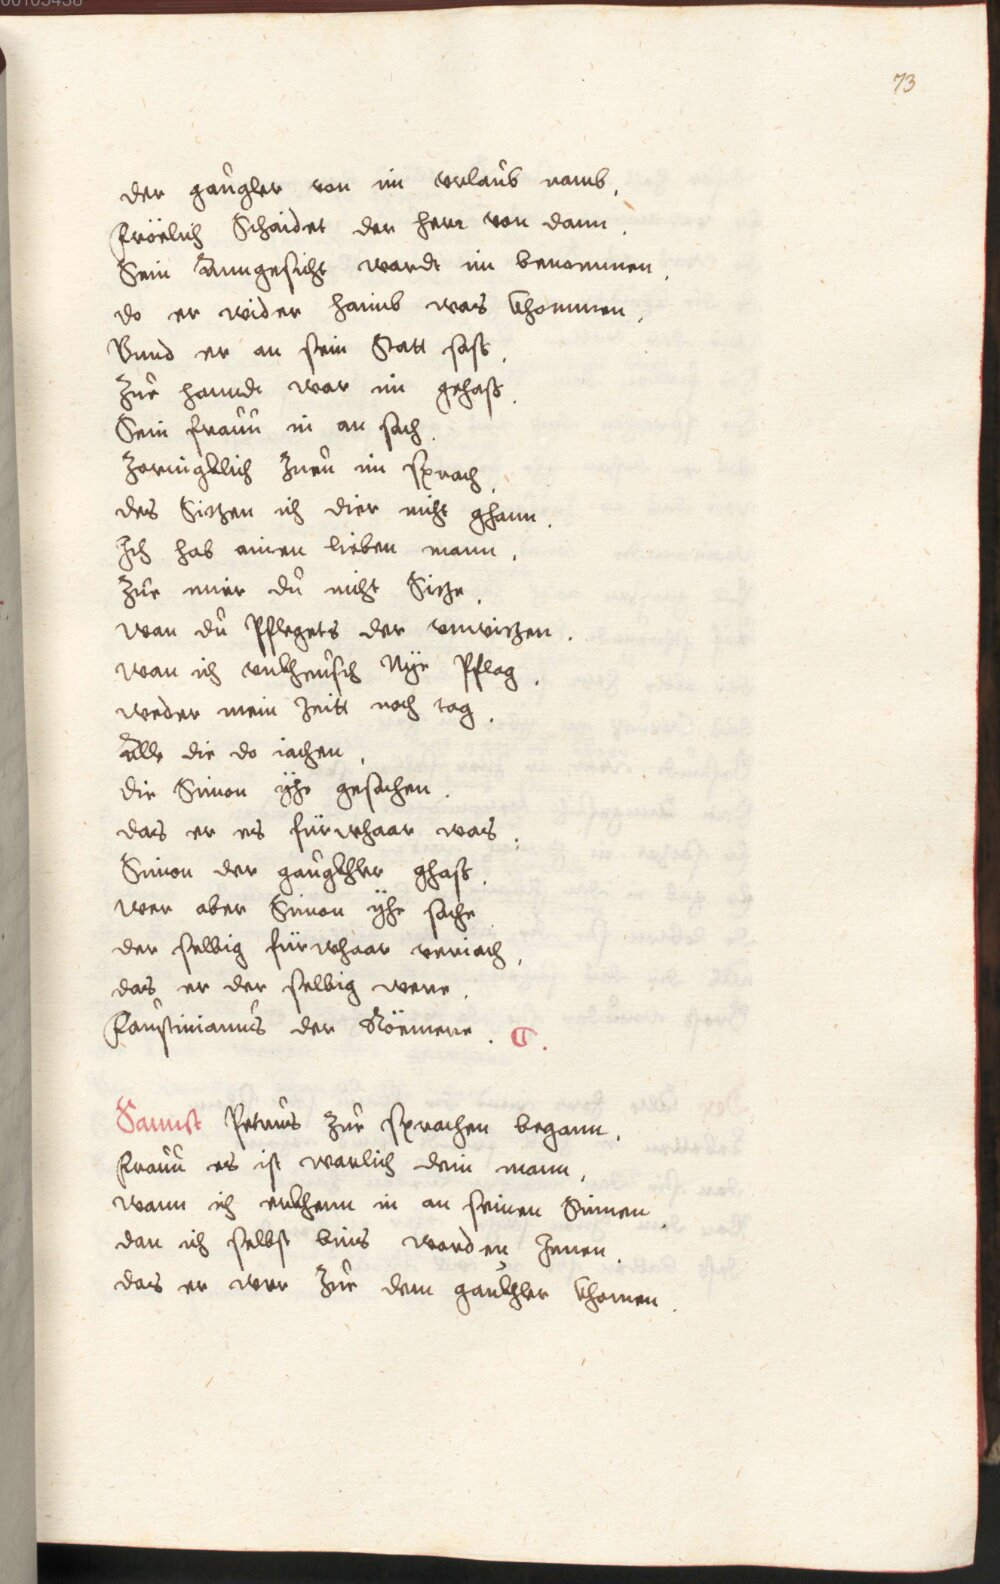 73
der gaugler von im vrlaub namb.
frölich Schaidet der herr von dann.
Sein Anngesicht wardt im benommen.
do er wider haimb was khommen.
Vnnd er an sein Statt sass.
Zue hanndt war im gehaß.
Sein frauu in an sach.
Zornigklich Zueu im sprach.
des Sitzen ich dier nicht ghann.
Ich hab ainen lieben mann.
Zue mier du nicht Sitze.
wan du Pflegets der vnwitzen.
wan ich vnkheusch Nye Pflag.
weder mein Zeitt noch tag.
Alle die do iachen.
die Simon ÿhe gesachen.
das er es fürwhaar was.
Simon der gaugkhler ghass.
wer aber Simon ÿhe sache
der selbig fürwhaar veriach.
das er der selbig were.
Faustinianus der Römere.
Sannct Petrus Zue sprachen begann.
frauu es ist warlich dein mann.
wann ich erkhenn in an seinen Sinnen.
dan ich selbst bins worden Innen.
das er wer Zue dem gaukhler khomen.